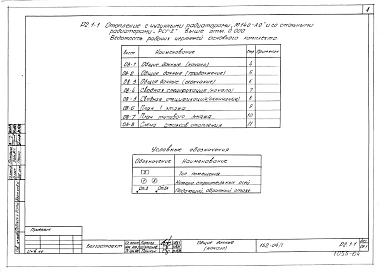 1
02.1-1 Отопление с чугунными радиаторами „М140-АО" и со стальными
радиаторами „РСГ-2" Выше отм. 0.000
Ведомость рабочих чертежей основного комплекта
Лист Наименование Стр Примечан.
ОВ-1 Общие данные (начало) 4
ОВ-2 Общие данные (продолжение) 5
ОВ-3 Общие данные (окончание) 6
ОВ-4 Сводная спецификация (начало) 7
ОВ-5 Сводная спецификация (окончание) 8
ОВ-6 План 1 этажа 9
ОВ-7 План типового этажа 10
ОВ-8 Схема стояков отопления 11
Условные обозначения
Обозначение Наименование
Тип помещения
Номера строительных осей
Подающий, обратный стояк
Привязан
Общие данные
(начало)
02.1-1